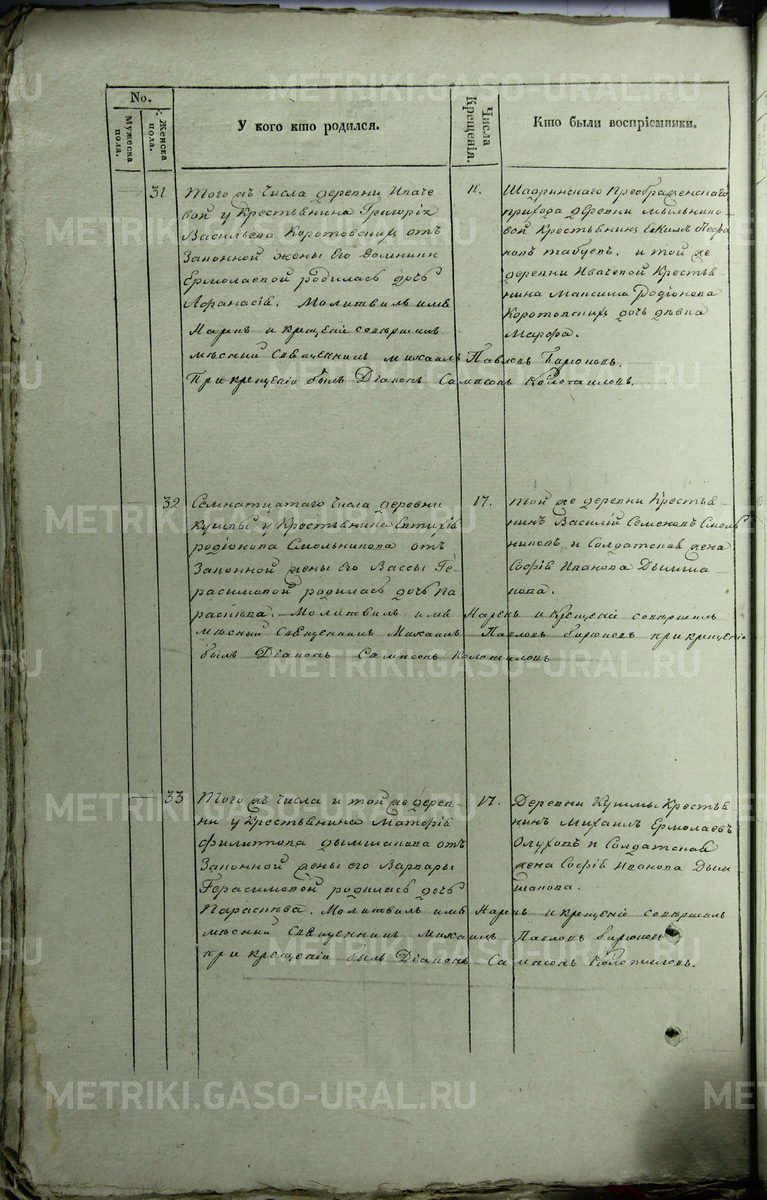 No.
Мужеска пола.
Женска пола.
У кого кто родился.
Числа Крещенія.
Кто были воспріемники.
31
Того жъ числа деревни Иваче
вой у Крестьянина Григорія
Васильева Коротовскихъ отъ
Законной жены Его Домники
Ермолаевой родилась дочь
Афанасія. Молитвилъ имя
Нарекъ и крещеніе совершилъ
мѣсный Священникъ Михаилъ Павловъ Бирюковъ.
При крещеніи былъ Діаконъ Сампсонъ
Шадринскаго Преображенскаго
прихода деревни Мыльнико
вой Крестьянинъ
и той же
деревни Ивачевой Крестья
нина Максима Родіонова
Коротовскихъ дочь дѣвка
Марфа.
32
Семнатцатаго Числа деревни
у Крестьянина Евтихія
родіонова Смольникова отъ
Законной жены его Вассы Ге
расимовой родилась дочь Па
распѣва. Молитвилъ имя Нарекъ и Крещеніе совершилъ
мѣсный Священникъ Михаилъ Павловъ бирюковъ при крещеніи
былъ Діаконъ Сампсонъ
17.
той же деревни Крестья
нинъ Василій Семеновъ Смоль
никовъ и Солдатская жена
Софія Иванова Дымша
кова.
33
Того жъ числа и той же дерев
ни у Крестьянина Матфія
филиппова дымшакова отъ
Законной жены его Варвары
Герасимовой родилась дочь
Параспѣва. Молитвилъ имя Нарекъ и крещеніе совершилъ
мѣсный Священникъ Михаилъ Павловъ бирюковъ
при крещеніи былъ Діаконъ Сампсонъ
17.
Деревни Крестья
нинъ Михаилъ Ермолаевъ
и Солдатская
жена Софія Иванова Дым
шакова.
METRIKI.GASO-URAL.RU